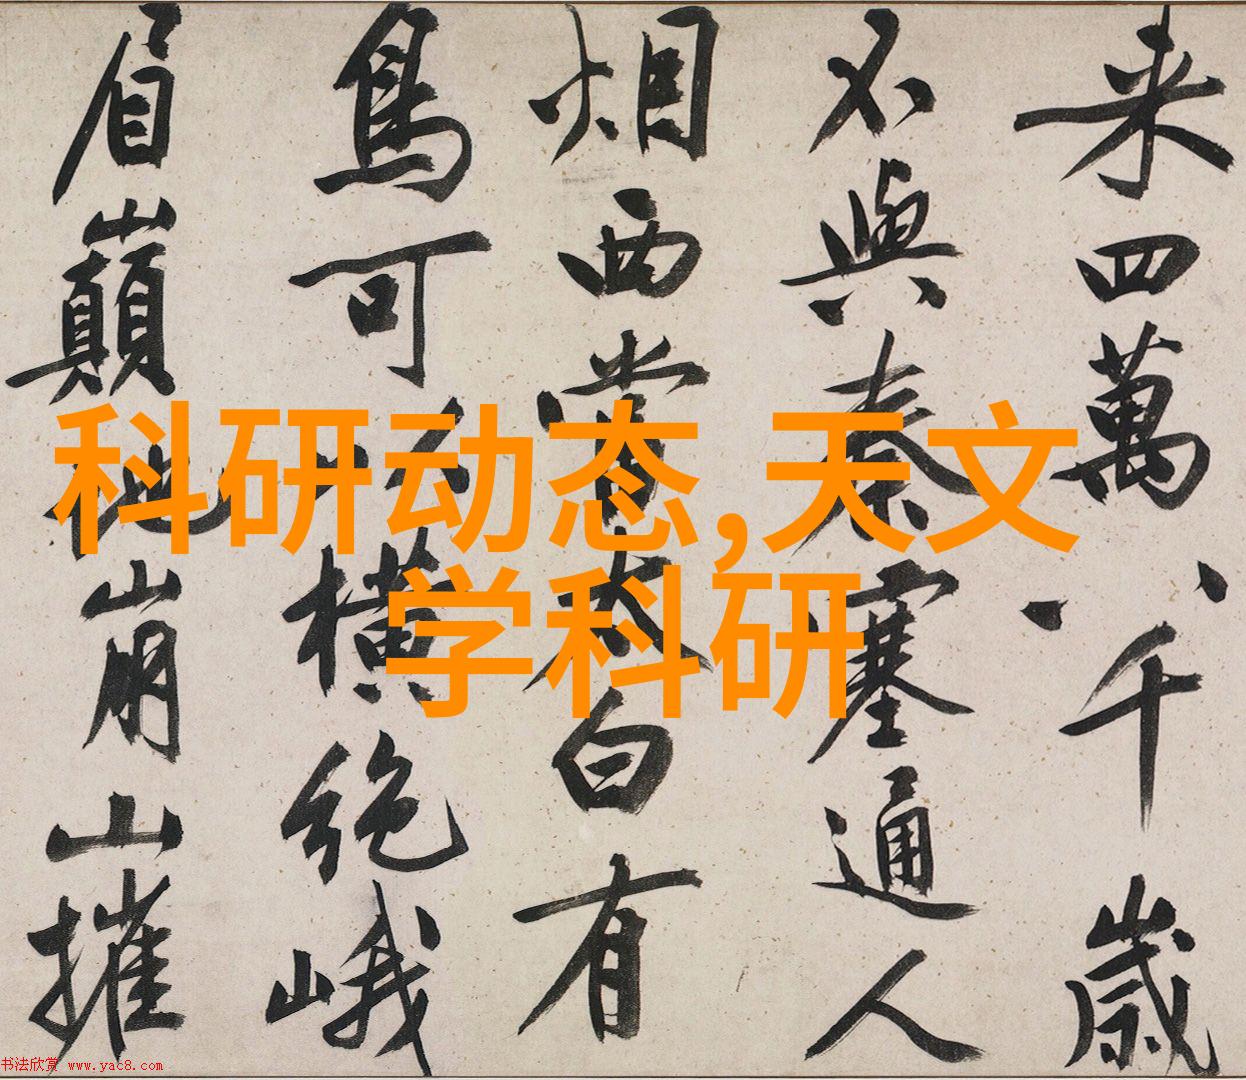 来四萬八千歲
不與秦塞通人
烟西當太白有
鳥可以橫絕峨
眉巔地崩山摧
科研动态,天文
学科研
书法欣赏 www.yac8.com